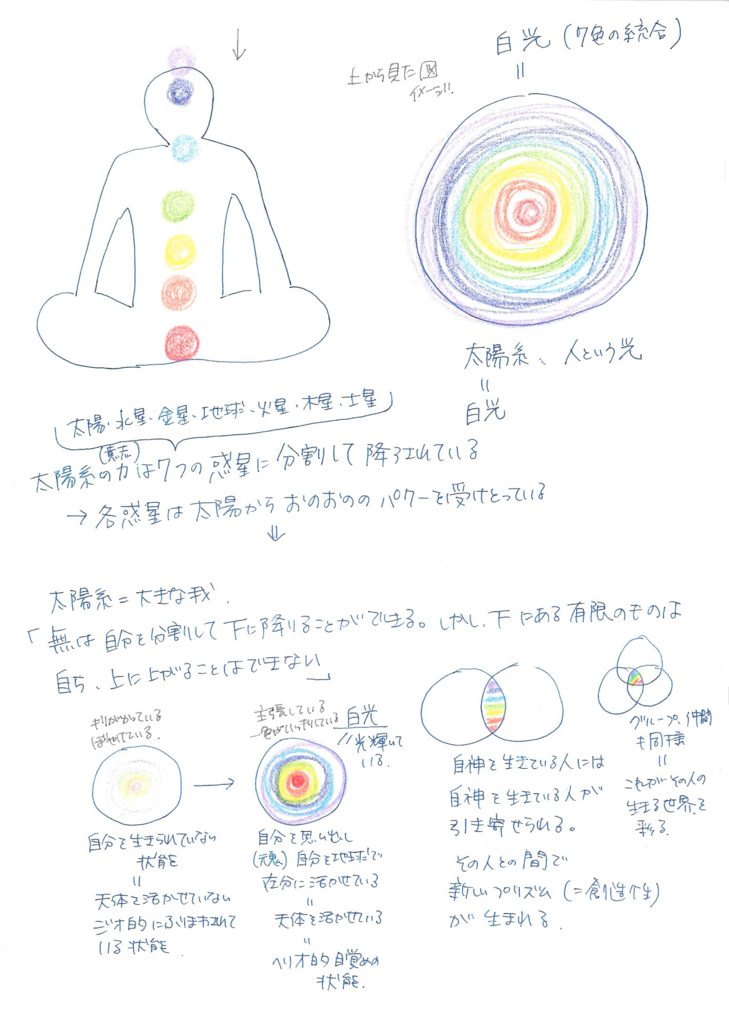 白光（7色の統合）
||
上から見た図
イメージ!!
太陽系、人という光
||
白光
太陽・水星・金星・地球・火星・木星・土星
（意志）
太陽系の力は7つの惑星に分割して降ろされている
→各惑星は太陽からおのおののパワーを受けとっている
⇓
太陽系＝大きな我.
「無は自分を分割して下に降りることができる。しかし、下にある有限のものは
自ら、上に上がることはできない」
キリがかっている
ぼやけている.
主張している
色がいっきりしている
白光
||
光輝いて
いる.
→
自分を生きられていない
状態
||
天体を活かせていない
ジオ的にふりまわされて
いる状態
自分を思い出し
（魂）自分を地球で
存分に活かせている
||
天体を活かせている
||
ヘリオ的自覚めの
状態.
自神を生きている人には
自神を生きている人が
引き寄せられる。
その人との間で
新しいプリズム（＝創造性）
が生まれる.
グループ、仲間
も同様
||
これがその人の
生きる世界を
彩る.